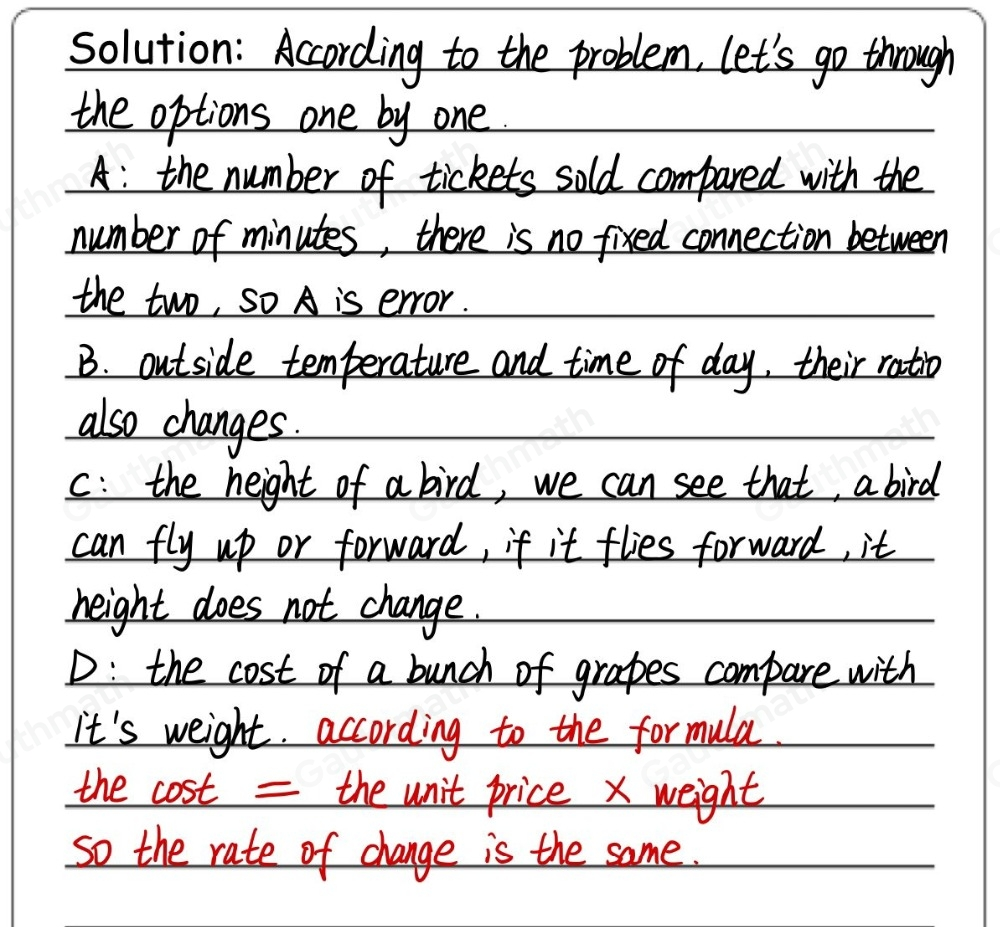 Solution: According to the problem, let's go through
the options one by one.
A: the number of tickets sold compared with the
number of minutes, there is no fixed connection between
the two, so A is error.
B. outside temperature and time of day, their ratio
also changes.
C: the height of a bird, we can see that, a bird
can fly up or forward, if it flies forward, it
height does not change.
D: the cost of a bunch of grapes compare with
it's weight. according to the formula.
the cost = the unit price × weight
so the rate of change is the same.
Gauthmath